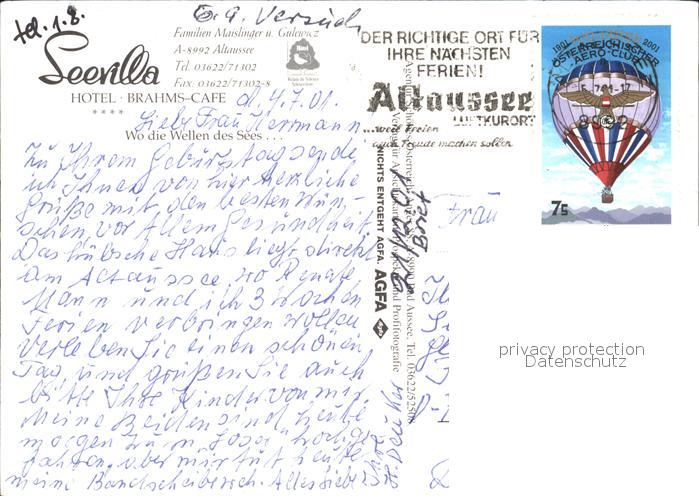 tel. 1.8.
Familien Maislinger u. Gulewicz
A-8992 Altaussee
Tel. 03622/71302
Fax: 03622/71302-8
Seevilla
HOTEL · BRAHMS-CAFE
****
Wo die Wellen des Sees . . .
d. 4.7.01.
Liebe Frau Herrmann
Zu Ihrem Geburtstag sende
ich Ihnen von hier herzliche
Grüße mit den besten Wün-
schen, vor Allem Gesundheit
Das hübsche Haus liegt direkt
am Altaussee wo Renate
Mann und ich 3 Wochen
Ferien verbringen wollen
Verleben Sie einen schönen
Tag und grüßen Sie auch
bitte Ihre Kinder von mir.
Meine Beiden sind heute
morgen zum
fahren, aber mir tut heute
meine Bandscheibe Alles Liebe
DER RICHTIGE ORT FÜR
IHRE NÄCHSTEN
FERIEN!
Altaussee
LUFTKURORT
...weil Ferien
auch Freude machen sollen
NICHTS ENTGEHT AGFA. AGFA
Bad Aussee, Tel. 03622/52508
und Profifotografie
Frau
1901 2001
ÖSTERREICHISCHER
AERO-CLUB
7s
privacy protection
Datenschutz